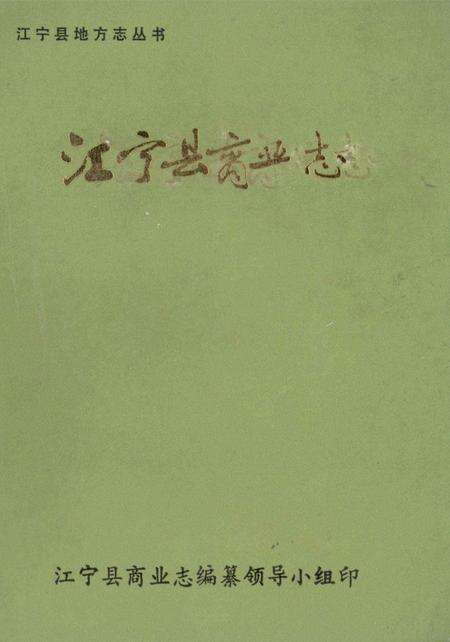 江宁县地方志丛书
江宁县商业志
江宁县商业志编纂领导小组印